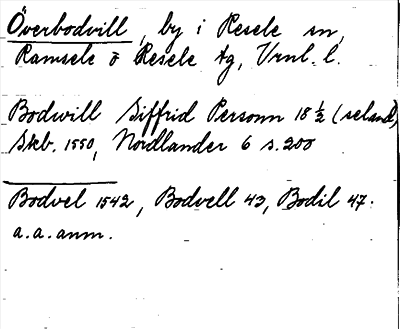 Överbodvill, by i Resele sn,
Ramsele o Resele tg, Vrnl. l.
Bodwill Siffrid Personn 18 ½ (seland)
Skb. 1550, Nordlander 6 s. 200
Bodvel 1542, Bodvell 43, Bodil 47.
a.a. anm.